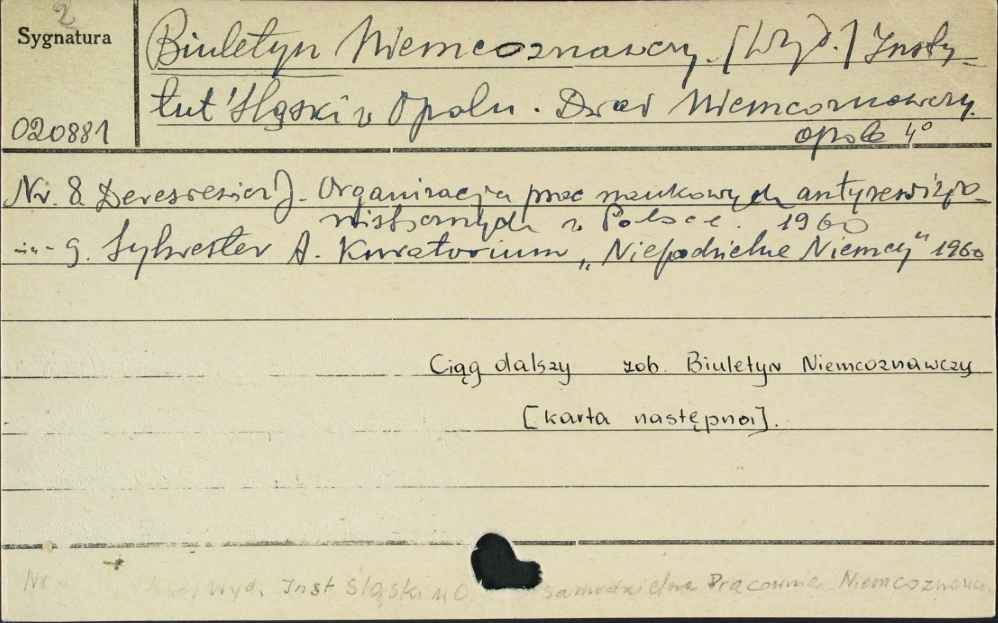 2
Sygnatura
020881
Biuletyn Niemcoznawczy. [Wyd.] Insty-
tut Śląski w Opolu. Dział Niemcoznawczy.
Opole 4°
Nr. 8. J. Organizacja prac naukowych antyrewizjo-
nistycznych w Polsce. 1960
-"- 9. Sylwester A. Kuratorium „Niepodzielne Niemcy" 1960
Ciąg dalszy zob. Biuletyn Niemcoznawczy
[karta następna].
Nr Wyd. Inst Śląski w O. Samodzielna Pracownia Niemcoznawcz